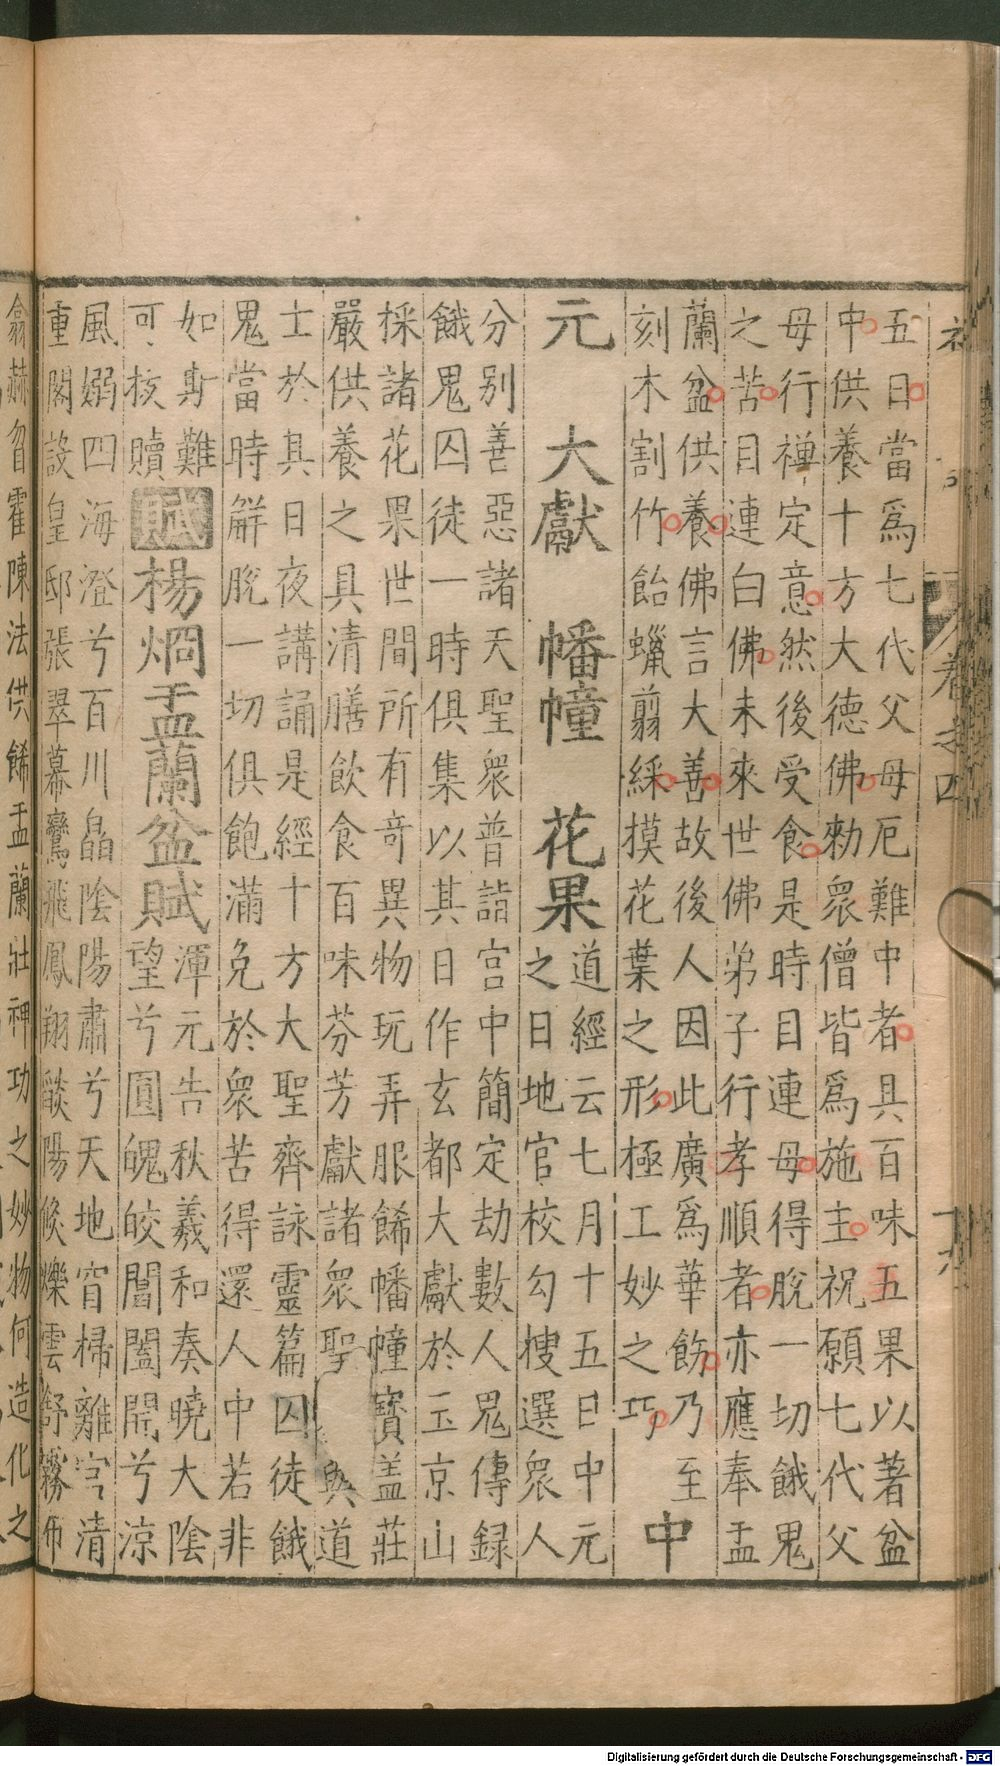 五日當爲七代父母厄難中者具百味五果以著盆
中供養十方大德佛勑衆僧皆爲施主祝願七代父
母行禅定意然後受食是時目連母得脫一切餓鬼
之苦目連白佛未來世佛弟子行孝順者亦應奉盂
蘭盆供養佛言大善故後人因此廣爲華飾乃至
刻木割竹飴蠟翦綵摸花葉之形極工妙之巧
中
元 大獻 幡幢 花果
道經云七月十五日中元
之日地官校勾搜選衆人
分别善惡諸天聖衆普詣宫中簡定劫數人鬼傳録
餓鬼囚徒一時俱集以其日作玄都大獻於玉京山
採諸花果世間所有奇異物玩弄服餙幡幢寳盖莊
嚴供養之具清膳飲食百味芬芳獻諸衆聖 與道
士於其日夜講誦是經十方大聖齊詠靈篇囚徒餓
鬼當時觧脫一切俱飽滿免於衆苦得還人中若非
如斯難
可拔贖
賦 楊烱盂蘭盆賦
渾元告秋羲和奏曉大陰
望兮圓魄皎閶闔開兮涼
風嫋四海澄兮百川皛陰陽肅兮天地窅掃離宫清
重閣設皇邸張翠幕鸞飛鳳翔㷸陽倐爍雲舒霧布
翕赫曶霍陳法供餙盂蘭壯神功之妙物何造化之
卷之四
十六
Digitalisierung gefördert durch die Deutsche Forschungsgemeinschaft - DFG